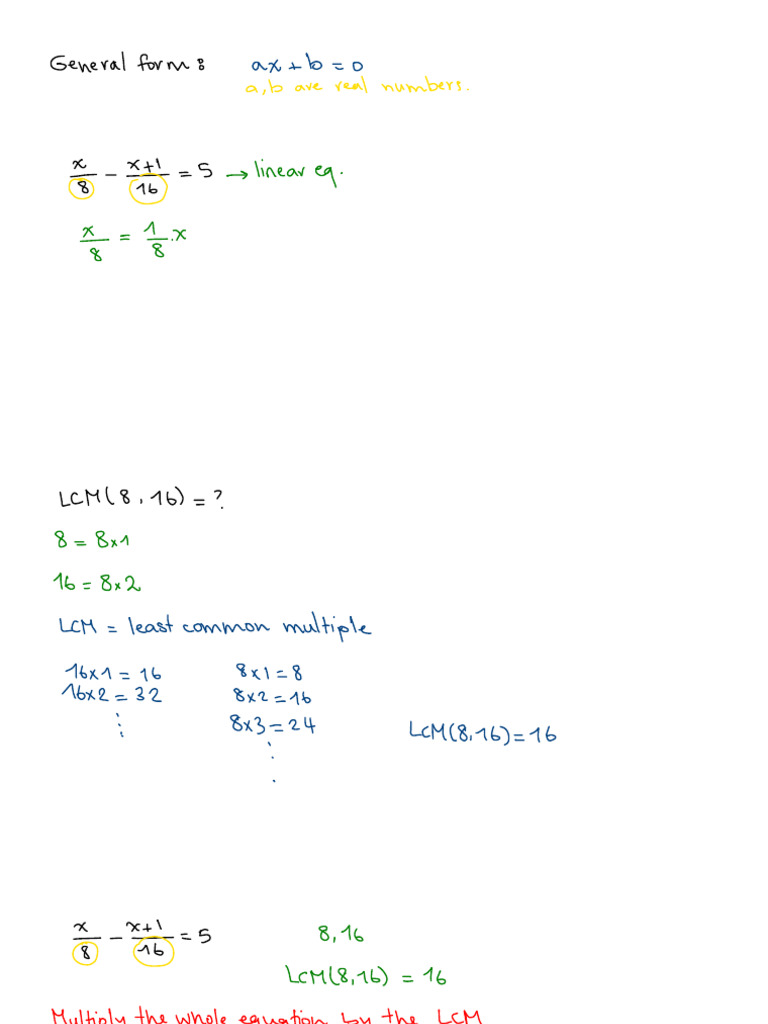 General form: ax + b = 0
a,b are real numbers.
x/8 - x+1/16 = 5 → linear eq.
x/8 = 1/8 . x
LCM(8, 16) = ?
8 = 8x1
16 = 8x2
LCM = least common multiple
16x1 = 16 8x1 = 8
16x2 = 32 8x2 = 16
⋮ 8x3 = 24
⋮ LCM(8,16) = 16
x/8 - x+1/16 = 5 8, 16
LCM(8,16) = 16
Multiply the whole equation by the LCM